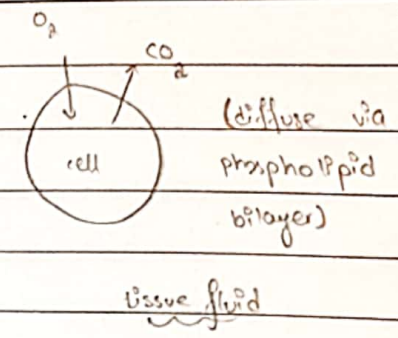 O₂
CO₂
(diffuse via
cell
phospholipid
bilayer)
tissue fluid